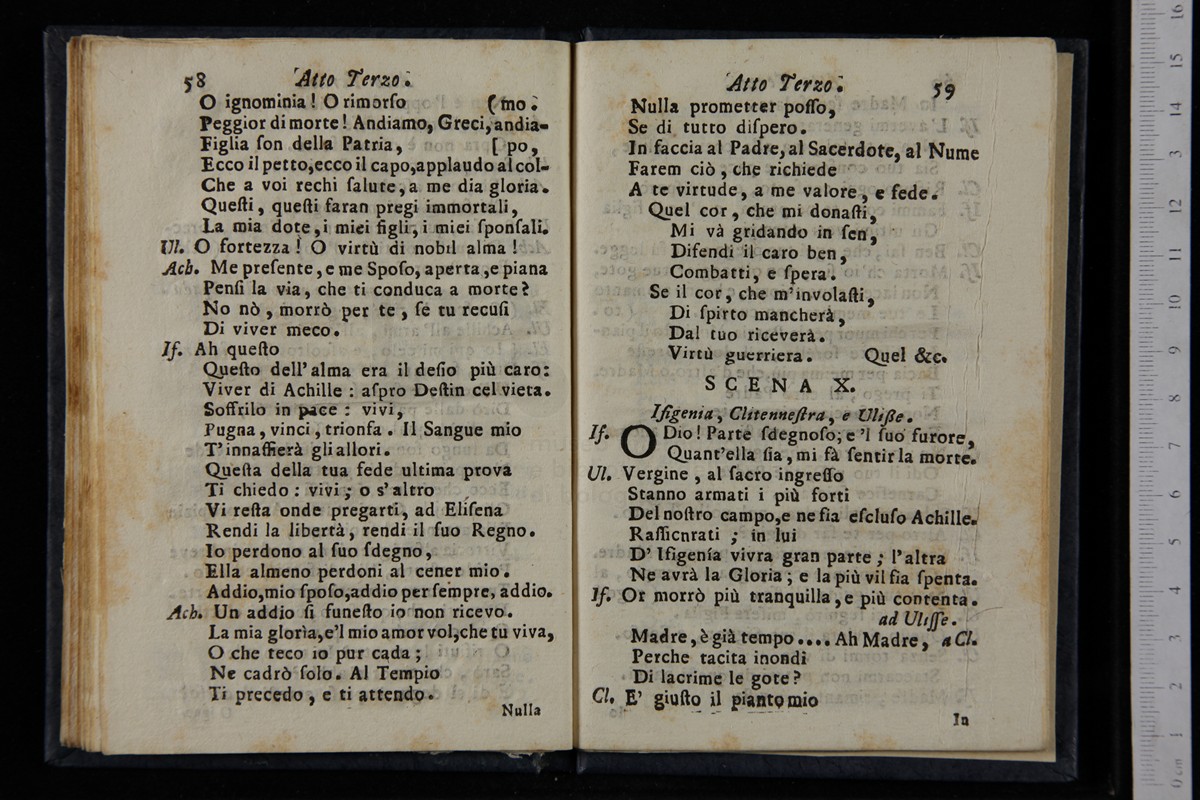 58 Atto Terzo.
O ignominia! O rimorſo (mo.
Peggior di morte! Andiamo, Greci, andia-
Figlia ſon della Patria, [po,
Ecco il petto, ecco il capo, applaudo al col-
Che a voi rechi ſalute, a me dia gloria.
Queſti, queſti faran pregi immortali,
La mia dote, i miei figli, i miei ſponſali.
Ul. O fortezza! O virtù di nobil alma!
Ach. Me preſente, e me Spoſo, aperta, e piana
Penſi la via, che ti conduca a morte?
No nò, morrò per te, ſe tu recuſi
Di viver meco.
If. Ah queſto
Queſto dell'alma era il deſio più caro:
Viver di Achille: aſpro Deſtin cel vieta.
Soffrilo in pace: vivi,
Pugna, vinci, trionfa. Il Sangue mio
T'innaffierà gli allori.
Queſta della tua fede ultima prova
Ti chiedo: vivi; o s'altro
Vi reſta onde pregarti, ad Eliſena
Rendi la libertà, rendi il ſuo Regno.
Io perdono al ſuo ſdegno,
Ella almeno perdoni al cener mio.
Addio, mio ſpoſo, addio per ſempre, addio.
Ach. Un addio ſi funeſto io non ricevo.
La mia glorìa, e'l mio amor vol, che tu viva,
O che teco io pur cada;
Ne cadrò ſolo. Al Tempio
Ti precedo, e ti attendo.
Nulla
Atto Terzo. 59
Nulla prometter poſſo,
Se di tutto diſpero.
In faccia al Padre, al Sacerdote, al Nume
Farem ciò, che richiede
A te virtude, a me valore, e fede.
Quel cor, che mi donaſti,
Mi và gridando in ſen,
Difendi il caro ben,
Combatti, e ſpera.
Se il cor, che m'involaſti,
Di ſpirto mancherà,
Dal tuo riceverà.
Virtù guerriera. Quel &c.
SCENA X.
Ifigenia, Clitenneſtra, e Uliſſe.
If. O Dio! Parte ſdegnoſo; e 'l ſuo furore,
Quant'ella ſia, mi fà ſentir la morte.
Ul. Vergine, al ſacro ingreſſo
Stanno armati i più forti
Del noſtro campo, e ne fia eſcluſo Achille.
Raſſicnrati; in lui
D'Ifigenía vivra gran parte; l'altra
Ne avrà la Gloria; e la più vil fia ſpenta.
If. Or morrò più tranquilla, e più contenta.
ad Uliſſe.
Madre, è già tempo.... Ah Madre, a Cl.
Perche tacita inondi
Di lacrime le gote?
Cl. E' giuſto il pianto mio
In
16
15
14
13
12
11
10
9
8
7
6
5
4
3
2
1
0 cm